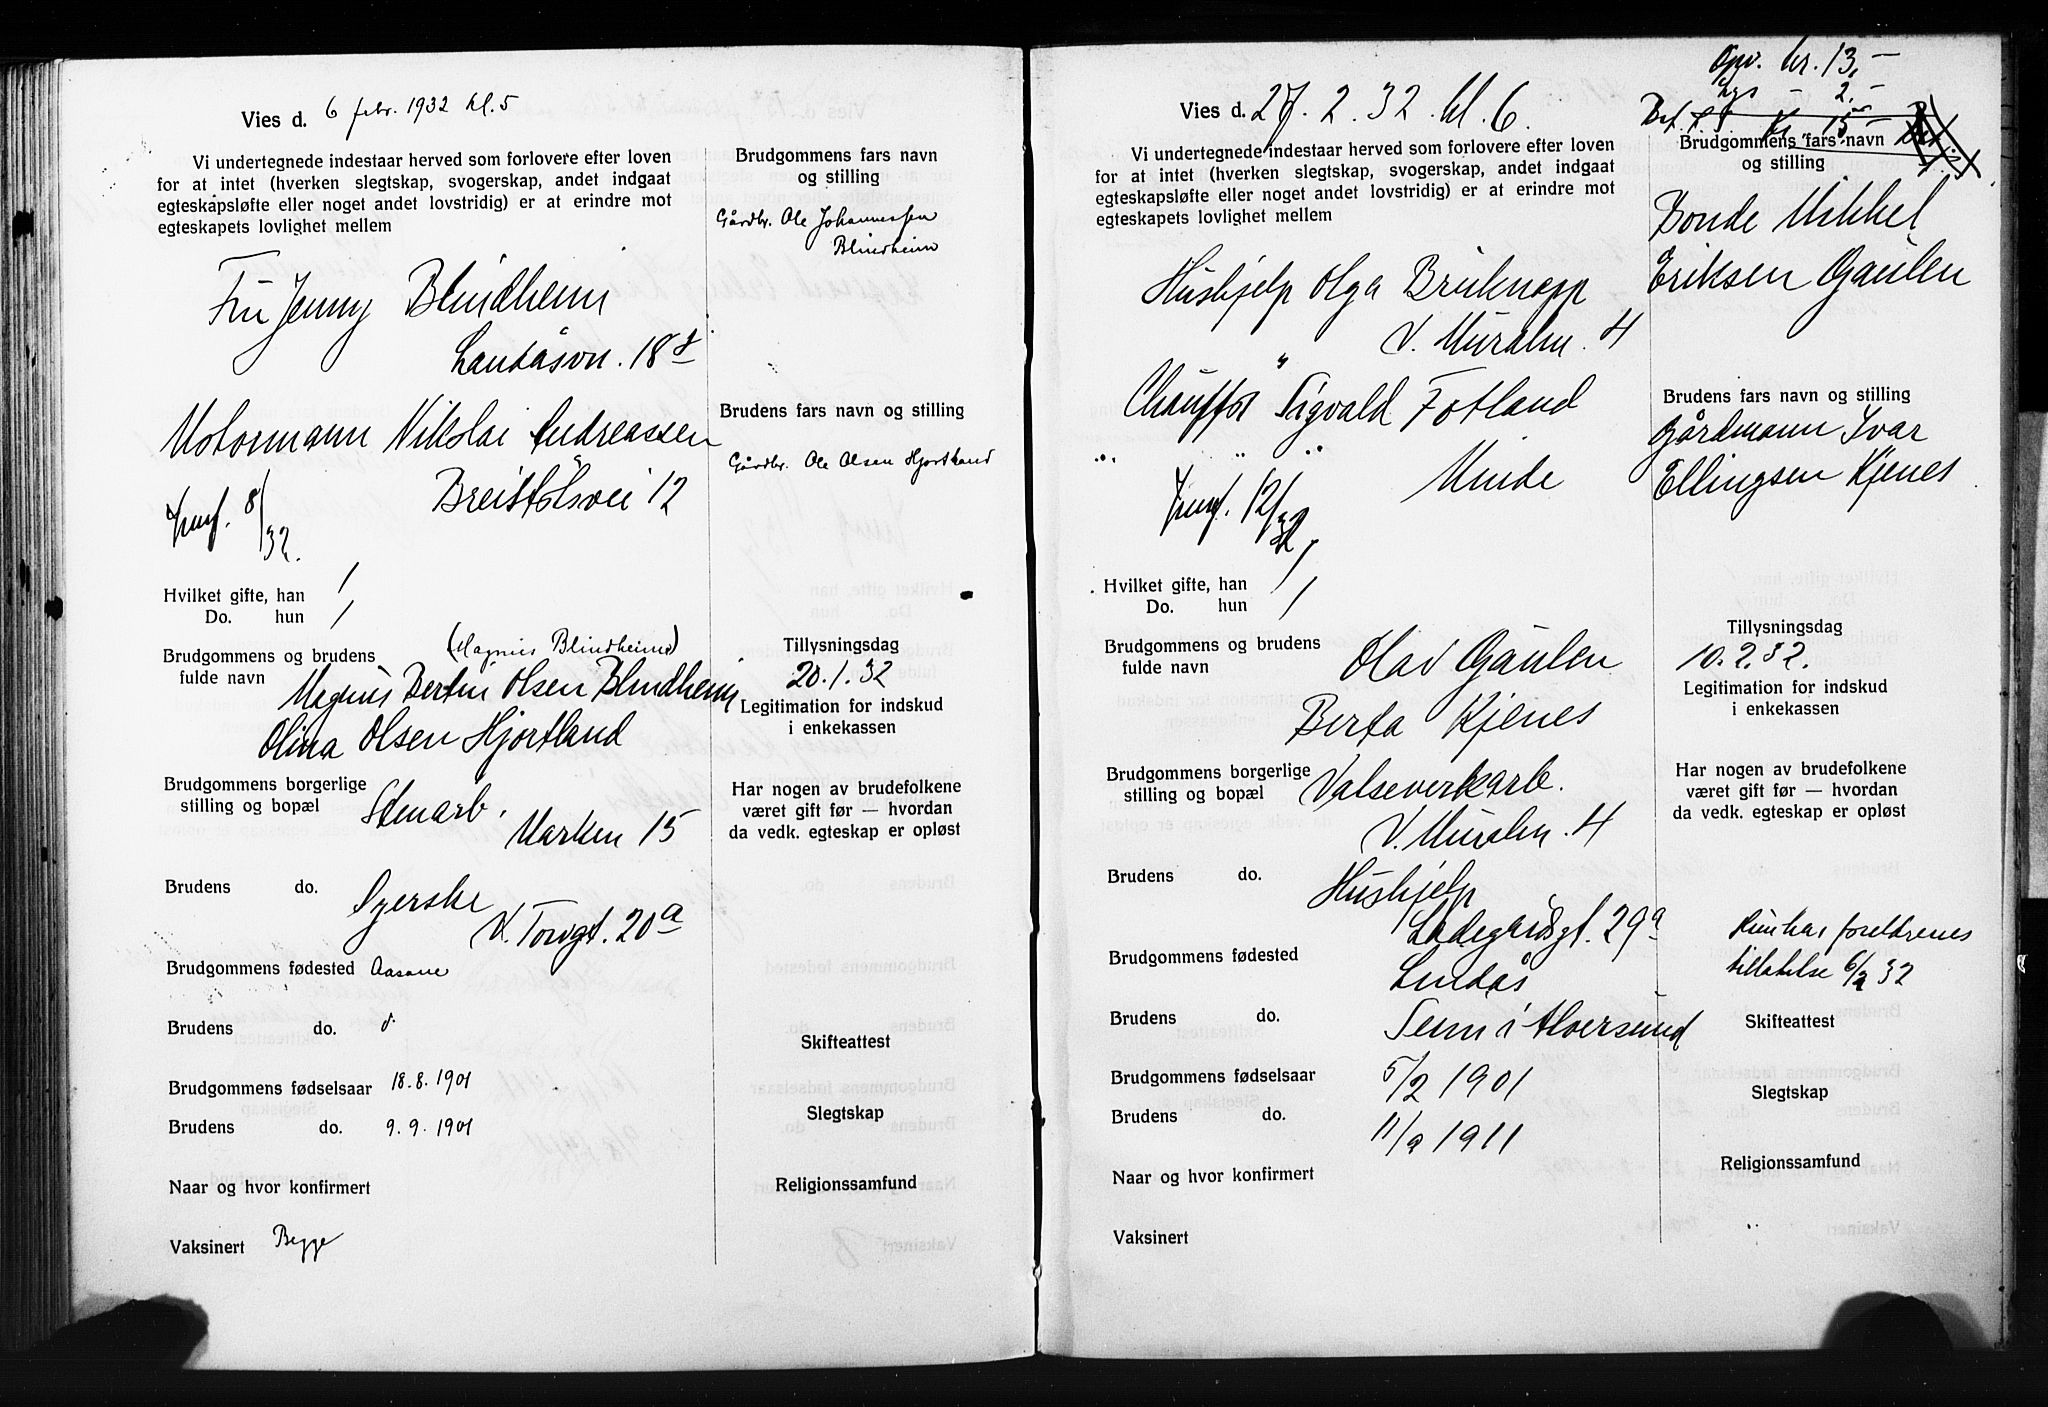 Vies d. 6 febr. 1932 kl. 5
Vi undertegnede indestaar herved som forlovere efter loven
for at intet (hverken slegtskap, svogerskap, andet indgaat
egteskapsløfte eller noget andet lovstridig) er at erindre mot
egteskapets lovlighet mellem
Fru Jenny Blindheim
Landåsvn. 18
Motormann Nikolai Andreassen
Breistølsvei 12
8/32.
Hvilket gifte, han 1
Do. hun 1
(Magnus Blindheim)
Brudgommens og brudens
fulde navn
Magnus Bertin Olsen Blindheim
Olina Olsen Hjortland
Brudgommens borgerlige
stilling og bopæl
Stenarb.
Marken 15
Brudens do.
Syerske
V. Torvgt. 20a
Brudgommens fødested Aasane
Brudens do. d.
Brudgommens fødselsaar 18.8.1901
Brudens do. 9.9.1901
Naar og hvor konfirmert
Vaksinert Begge
Brudgommens fars navn
og stilling
Gårdbr. Ole Johannessen
Blindheim
Brudens fars navn og stilling
Gårdbr. Ole Olsen Hjortland
Tillysningsdag
20.1.32
Legitimation for indskud
i enkekassen
Har nogen av brudefolkene
været gift før — hvordan
da vedk. egteskap er opløst
Skifteattest
Slegtskap
Religionssamfund
Opv. kr. 13,-
Lys - 2,-
Bet. Kr. 15
Vies d. 27.2.32. kl. 6.
Vi undertegnede indestaar herved som forlovere efter loven
for at intet (hverken slegtskap, svogerskap, andet indgaat
egteskapsløfte eller noget andet lovstridig) er at erindre mot
egteskapets lovlighet mellem
Hushjelp Olga Bruknapp
V. Muralm. 4
Chauffør Sigvald Fotland
" " Minde
12/32
Hvilket gifte, han 1
Do. hun 1
Brudgommens og brudens
fulde navn
Olav Gaulen
Berta Kjenes
Brudgommens borgerlige
stilling og bopæl
Valseverksarb.
V. Muralm. 4
Brudens do.
Hushjelp
Ladegårdsgt. 29a
Brudgommens fødested
Lindås
Brudens do.
Seim i Alversund
Brudgommens fødselsaar 5/2 1901
Brudens do. 11/9 1911
Naar og hvor konfirmert
Vaksinert
Brudgommens fars navn
og stilling
Bonde Mikkel
Eriksen Gaulen
Brudens fars navn og stilling
Gårdmann Ivar
Ellingsen Kjenes
Tillysningsdag
10.2.32.
Legitimation for indskud
i enkekassen
Har nogen av brudefolkene
været gift før — hvordan
da vedk. egteskap er opløst
Hun har foreldrenes
tillatelse 6/2 32
Skifteattest
Slegtskap
Religionssamfund